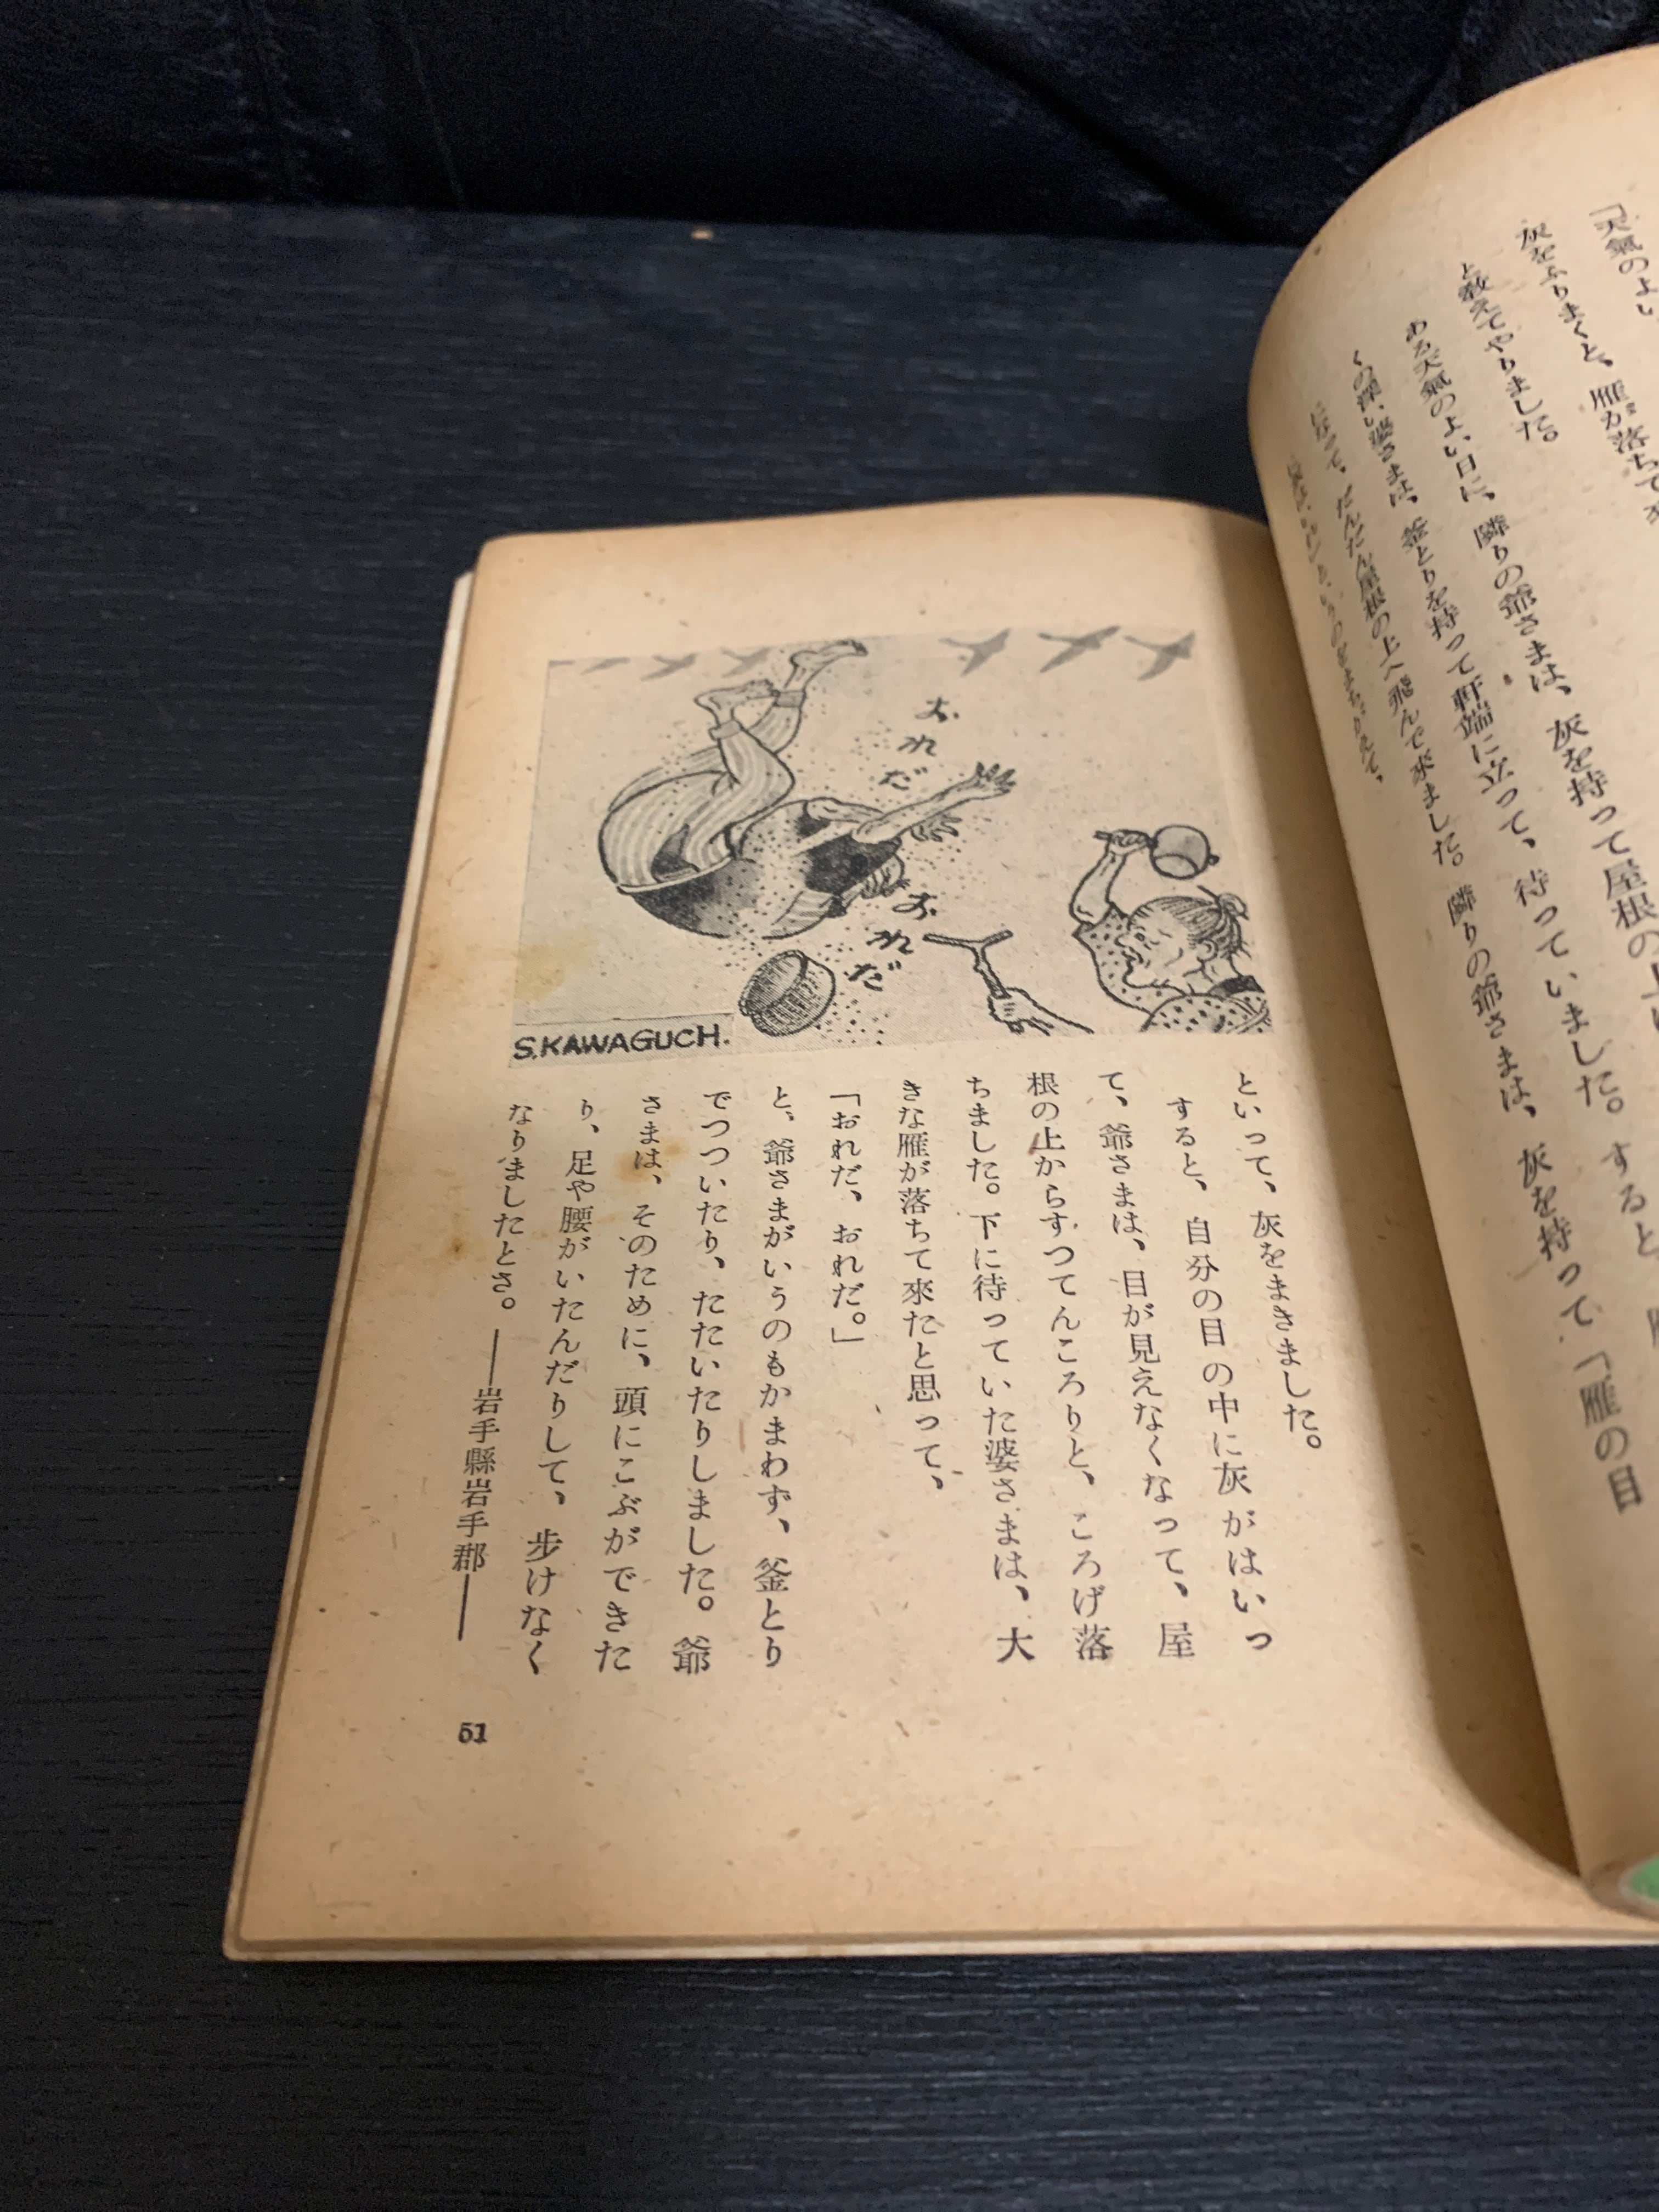 「天氣のよい
灰をふりまくと、雁が落ちて來
と教えてやりました。
ある天氣のよい日に、隣りの爺さまは、灰を持って屋根の上に
くの深い婆さまは、釜とりを持って軒端に立って、待っていました。すると、雁
だんだん屋根の上へ飛んで來ました。隣りの爺さまは、灰を持って「雁の目
おれだ
おれだ
S.KAWAGUCH.
といって、灰をまきました。
すると、自分の目の中に灰がはいっ
て、爺さまは、目が見えなくなって、屋
根の上からすつてんころりと、ころげ落
ちました。下に待っていた婆さまは、大
きな雁が落ちて來たと思って、
「おれだ、おれだ。」
と、爺さまがいうのもかまわず、釜とり
でつついたり、たたいたりしました。爺
さまは、そのために、頭にこぶができた
り、足や腰がいたんだりして、歩けなく
なりましたとさ。――岩手縣岩手郡――
51